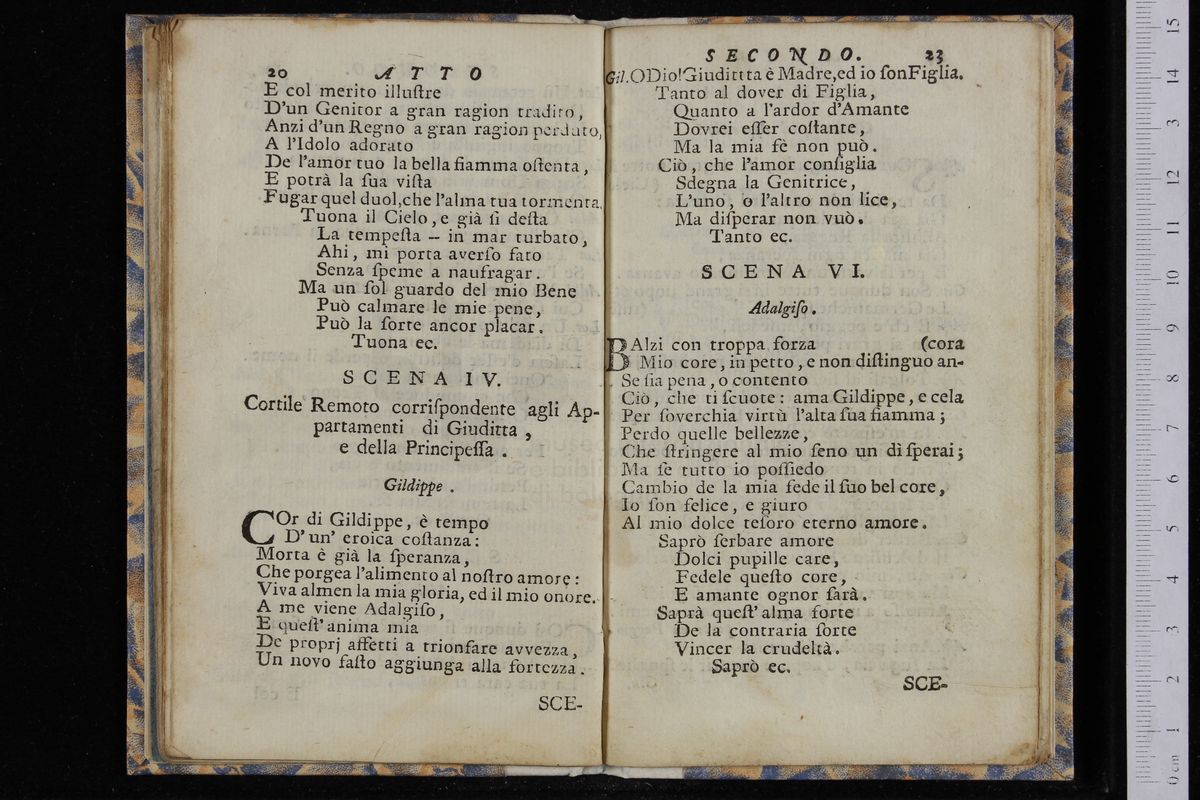 20 ATTO
E col merito illuſtre
D'un Genitor a gran ragion tradito,
Anzi d'un Regno a gran ragion perduto,
A l'Idolo adorato
De l'amor tuo la bella fiamma oſtenta,
E potrà la ſua viſta
Fugar quel duol,che l'alma tua tormenta.
Tuona il Cielo, e già ſi deſta
La tempeſta -- in mar turbato,
Ahi, mi porta averſo fato
Senza ſpeme a naufragar.
Ma un ſol guardo del mio Bene
Può calmare le mie pene,
Può la ſorte ancor placar.
Tuona ec.
SCENA IV.
Cortile Remoto corriſpondente agli Ap-
partamenti di Giuditta,
e della Principeſſa.
Gildippe.
COr di Gildippe, è tempo
D'un' eroica coſtanza:
Morta è già la ſperanza,
Che porgea l'alimento al noſtro amore:
Viva almen la mia gloria, ed il mio onore.
A me viene Adalgiſo,
E queſt' anima mia
De proprj affetti a trionfare avvezza,
Un novo faſto aggiunga alla fortezza.
SCE-
SECONDO. 23
Gil.ODio!Giudittta è Madre,ed io ſonFiglia.
Tanto al dover di Figlia,
Quanto a l'ardor d'Amante
Dovrei eſſer coſtante,
Ma la mia fè non può.
Ciò, che l'amor conſiglia
Sdegna la Genitrice,
L'uno, o l'altro non lice,
Ma diſperar non vuò.
Tanto ec.
SCENA VI.
Adalgiſo.
BAlzi con troppa forza (cora
Mio core, in petto, e non diſtinguo an-
Se ſia pena, o contento
Ciò, che ti ſcuote: ama Gildippe, e cela
Per ſoverchia virtù l'alta ſua fiamma;
Perdo quelle bellezze,
Che ſtringere al mio ſeno un dì ſperai;
Ma ſe tutto io poſſiedo
Cambio de la mia fede il ſuo bel core,
Io ſon felice, e giuro
Al mio dolce teſoro eterno amore.
Saprò ſerbare amore
Dolci pupille care,
Fedele queſto core,
E amante ognor ſarà.
Saprà queſt' alma forte
De la contraria ſorte
Vincer la crudeltà.
Saprò ec.
SCE-
0 cm 1 2 3 4 5 6 7 8 9 10 11 12 3 14 15